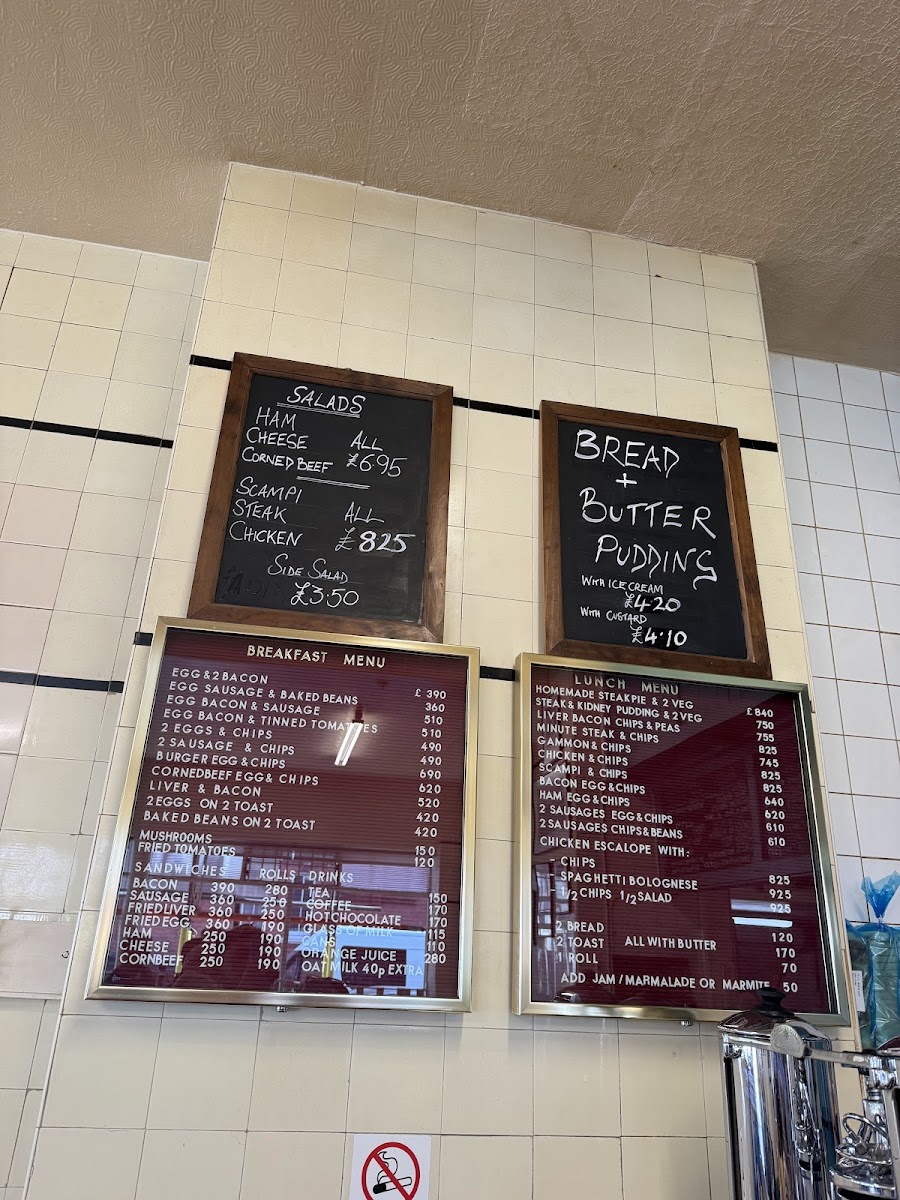 SALADS
HAM
CHEESE ALL
CORNED BEEF £6.95
SCAMPI
STEAK ALL
CHICKEN £825
SIDE SALAD
£3.50
BREAD
+
BUTTER
PUDDING
WITH ICE CREAM
£4.20
WITH CUSTARD
£4.10
BREAKFAST MENU
EGG & 2 BACON £ 390
EGG SAUSAGE & BAKED BEANS 360
EGG BACON & SAUSAGE 510
EGG BACON & TINNED TOMATOES 510
2 EGGS & CHIPS 490
2 SAUSAGE & CHIPS 490
BURGER EGG & CHIPS 690
CORNEDBEEF EGG & CHIPS 620
LIVER & BACON 520
2 EGGS ON 2 TOAST 420
BAKED BEANS ON 2 TOAST 420
MUSHROOMS 150
FRIED TOMATOES 120
SANDWICHES ROLLS DRINKS
BACON 390 280 TEA 150
SAUSAGE 360 250 COFFEE 170
FRIEDLIVER 360 250 HOTCHOCOLATE 170
FRIED EGG 360 190 1 GLASS OF MILK 115
HAM 250 190 CANS 110
CHEESE 250 190 ORANGE JUICE 280
CORNBEEF 250 190 OATMILK 40p EXTRA
LUNCH MENU
HOMEMADE STEAKPIE & 2 VEG £ 840
STEAK & KIDNEY PUDDING & 2 VEG 750
LIVER BACON CHIPS & PEAS 755
MINUTE STEAK & CHIPS 825
GAMMON & CHIPS 745
CHICKEN & CHIPS 825
SCAMPI & CHIPS 825
BACON EGG & CHIPS 640
HAM EGG & CHIPS 620
2 SAUSAGES EGG & CHIPS 610
2 SAUSAGES CHIPS & BEANS 610
CHICKEN ESCALOPE WITH:
- CHIPS 825
- SPAGHETTI BOLOGNESE 925
- 1/2 CHIPS 1/2 SALAD 925
2 BREAD 120
2 TOAST ALL WITH BUTTER 170
1 ROLL 70
ADD JAM / MARMALADE OR MARMITE 50